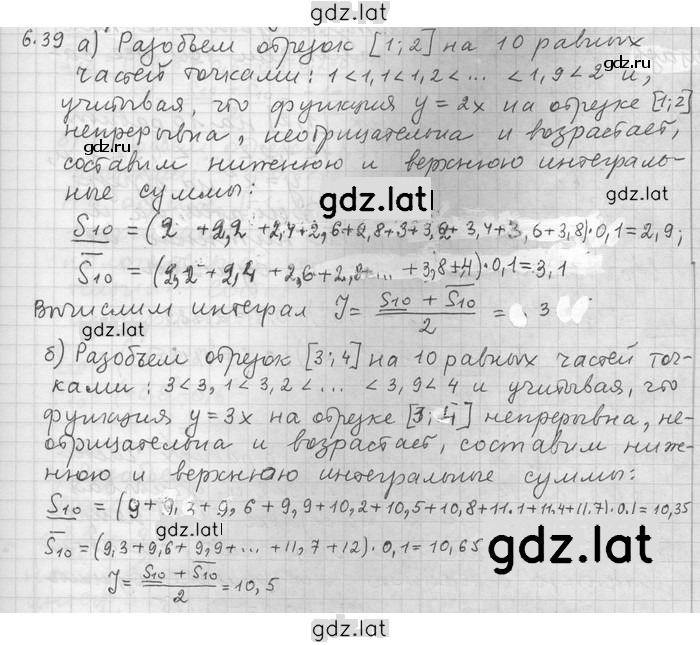 gdz.lat
6.39 а) Разобьем отрезок [1;2] на 10 равных
частей точками: 1<1,1<1,2<... <1,9<2 и,
учитывая, что функция y=2x на отрезке [1;2]
gdz.lat
непрерывна, неотрицательна и возрастает,
gdz.lat
составим нижнюю и верхнюю интеграль-
ные суммы:
gdz.lat
gdz.lat
S10 = (2 +2,2 +2,4+2,6+2,8+3+3,2+3,4+3,6+3,8)·0,1=2,9;
S10 = (2,2+2,4 +2,6+2,8... +3,8+4)·0,1=3,1
Вычислим интеграл J= S10 + S10 / 2 = 3
gdz.lat
б) Разобьем отрезок [3;4] на 10 равных частей точ-
gdz.lat
ками: 3<3,1<3,2<... <3,9<4 и учитывая, что
функция y=3x на отрезке [3;4] непрерывна, не-
отрицательна и возрастает, составим ниж-
нюю и верхнюю интегральные суммы:
S10 = (9+9,3+9,6+9,9+10,2+10,5+10,8+11.1+11.4+11.7)·0.1=10,35
gdz.lat
S10 = (9,3+9,6+9,9+...+11,7+12)·0,1=10,65
gdz.lat
J= S10 + S10 / 2 =10,5
gdz.lat
gdz.lat